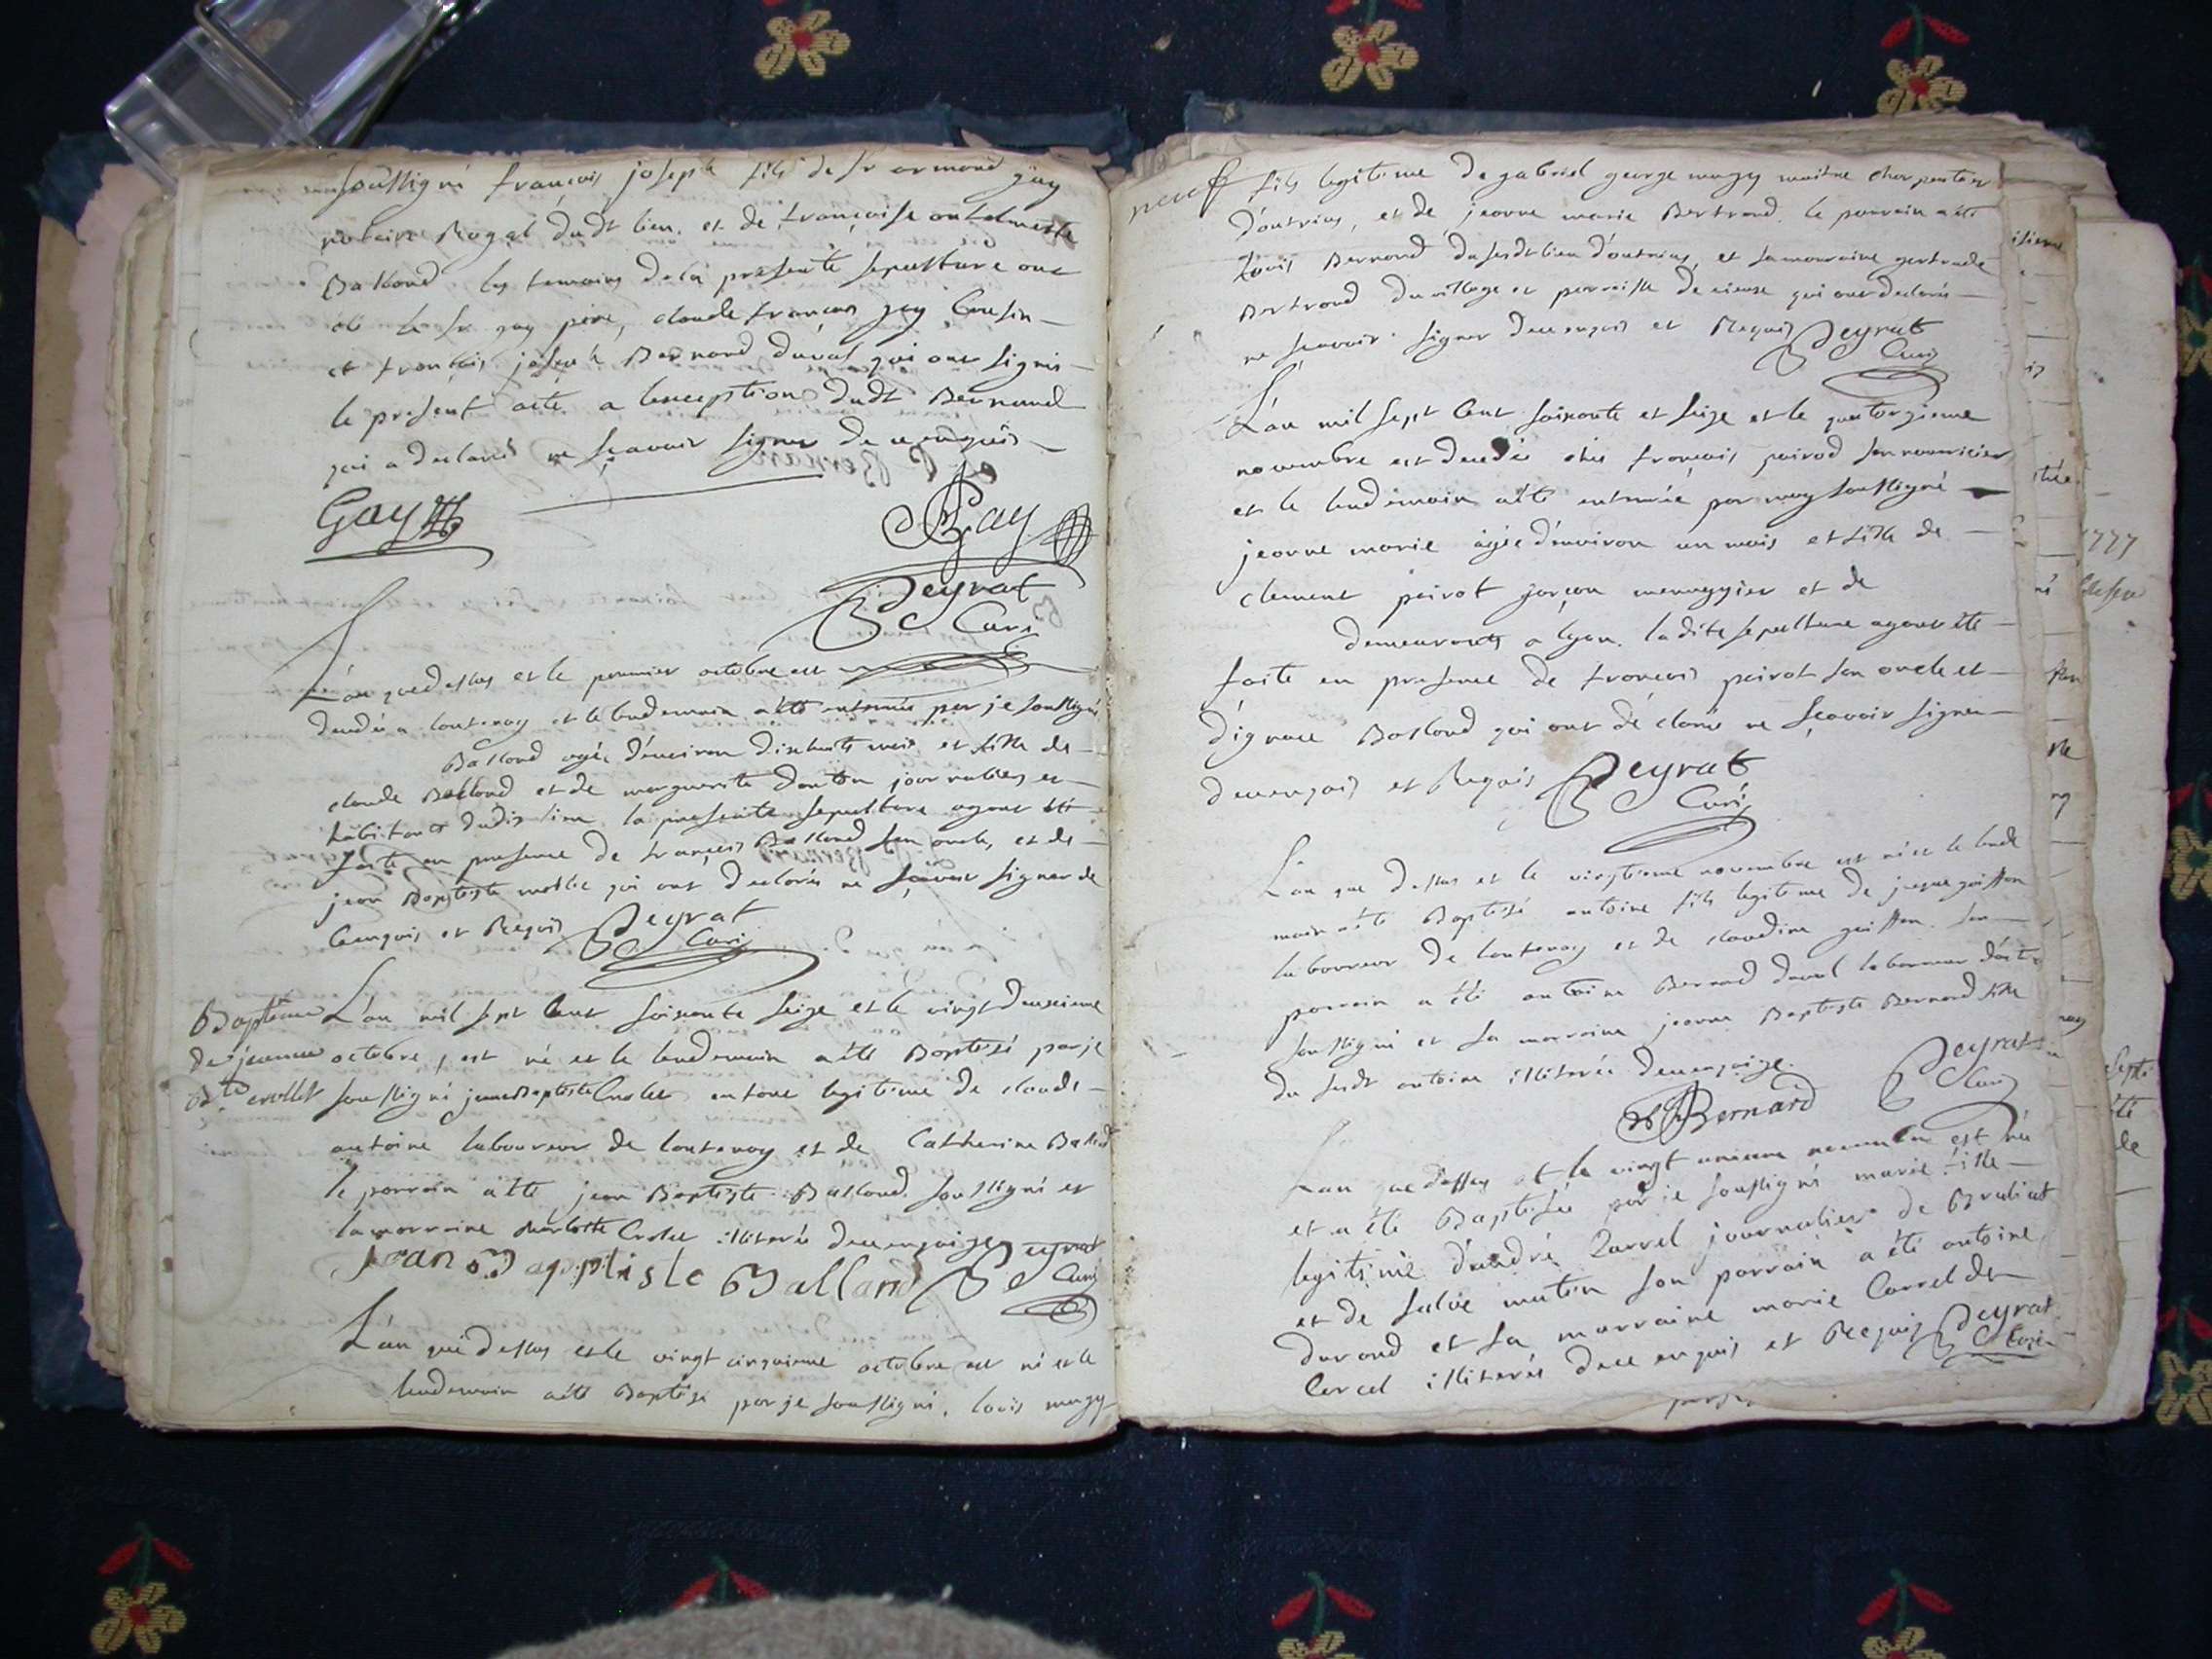 soussigné françois joseph fils de sr armand gay
notaire Royal dudt lieu. et de françoise
Balland les temoins de la presente sepulture ont
été le sr gay pere, claude françois gay Cousin
et françois joseph Bernard duval qui ont signés
le present acte a lexception dudt Bernard
qui a declaré ne sçavoir signer de ce enquis
Gay
Gay
Peyrat
Curé
L'an que dessus et le premier octobre est
decedée a contenoy et le lendemain a été enterrée par je soussigné
Balland agée d'environ dixhuit mois et fille de
claude Balland et de marguerite journaliers et
habitants dudit lieu la presente sepulture ayant été
faite en presence de françois Balland son oncle, et de
jean Baptiste qui ont declarés ne sçavoir signer de
ce enquis et Requis Peyrat
Curé
Baptême L'an mil sept Cent soixante seize et le vingt deuxieme
de jeanne octobre, est né et le lendemain a été Baptisé par je
Bte crollet soussigné jeanne Baptiste Crollet enfant legitime de claude
antoine laboureur de contenoy et de Catherine Balland
le parrain a été jean Baptiste Balland soussigné et
la marraine charlotte Crollet illiterée de ce enquise Peyrat
Jean Bapptiste Balland Curé
L'an que dessus et le vingt cinquieme octobre est né et le
lendemain a été Baptisé par je soussigné, louis mugy
neuf fils legitime de gabriel george mugy maitre charpentier
d'outriaz, et de jeanne marie Bertrand. le parrain a été
Louis Bernard du susdt lieu d'outriaz, et sa marraine gertrude
Bertrand du village et parroisse de cieuse qui ont declarés
ne sçavoir signer de ce enquis et Requis Peyrat
Curé
L'an mil sept Cent soixante et seize et le quatorzieme
novembre est decedée chés françois poirod son nourricier
et le lendemain a été enterrée par moy soussigné
jeanne marie agée d'environ un mois et fille de
clement poirot garçon menuzzier et de
demeurants a lyon. la dite sepulture ayant été
faite en presence de françois poirot son oncle et
d'ignace Balland qui ont déclarés ne sçavoir signer
de ce enquis et Requis Peyrat
Curé
L'an que dessus et le vingtieme novembre est né et le lende
main a été Baptisé antoine fils legitime de jaque goisson
laboureur de contenoy et de claudine goisson son
parrain a été antoine Bernard duval laboureur
soussigné et sa marraine jeanne Baptiste Bernard fille
du susdt antoine illiterée de ce enquise.
Peyrat
Curé
Bernard
L'an que dessus et le vingt unieme novembre est née
et a été Baptisée par je soussigné marie fille
legitime d'andré Carrel journalier de Brulliat
et de silvie mutin son parrain a été antoine
durand et sa marraine marie Carrel de
Corcel illiterés de ce enquis et Requis Peyrat
Curé
1777